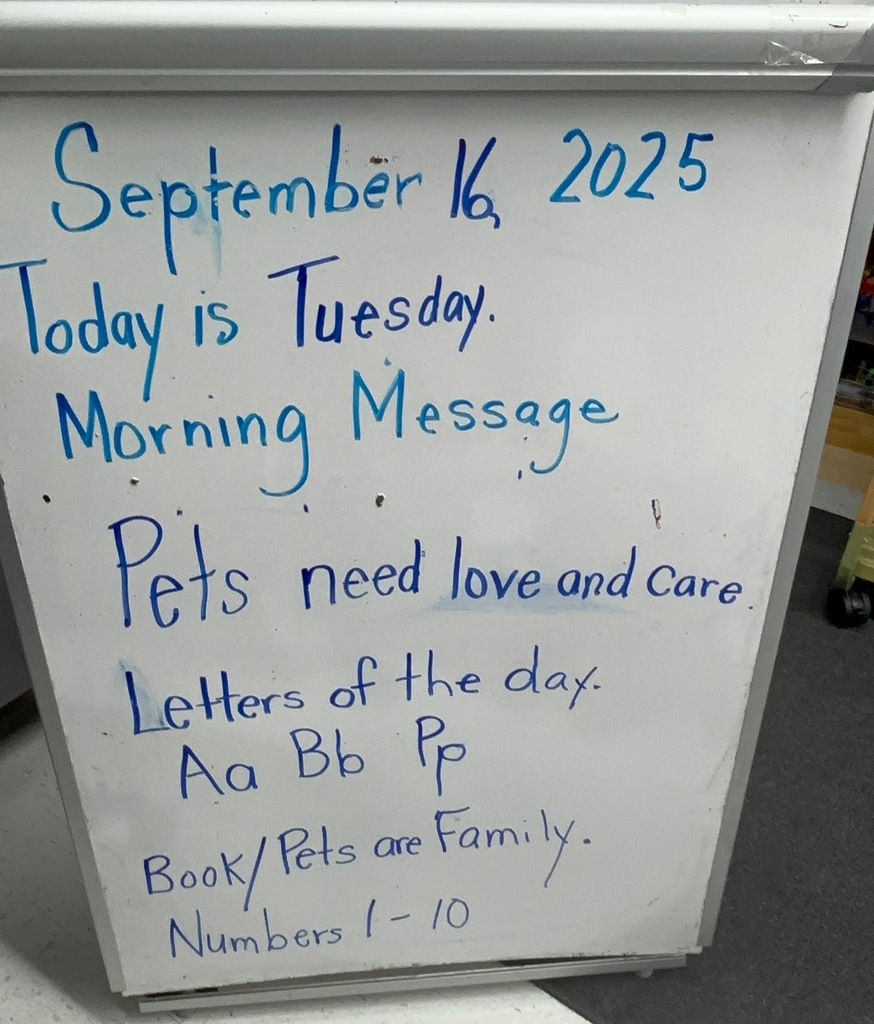 September 16, 2025
Today is Tuesday.
Morning Message
Pets need love and care.
Letters of the day.
Aa Bb Pp
Book/Pets are Family.
Numbers 1-10